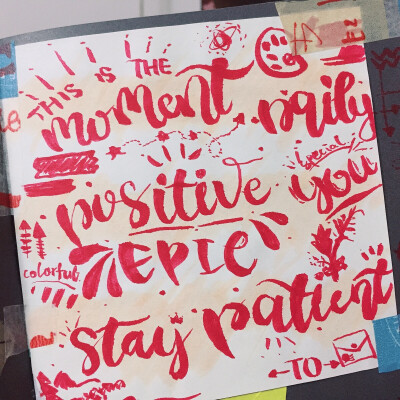 THIS IS THE
moment daily
special
positive you
EPIC
colorful
stay patient
TO